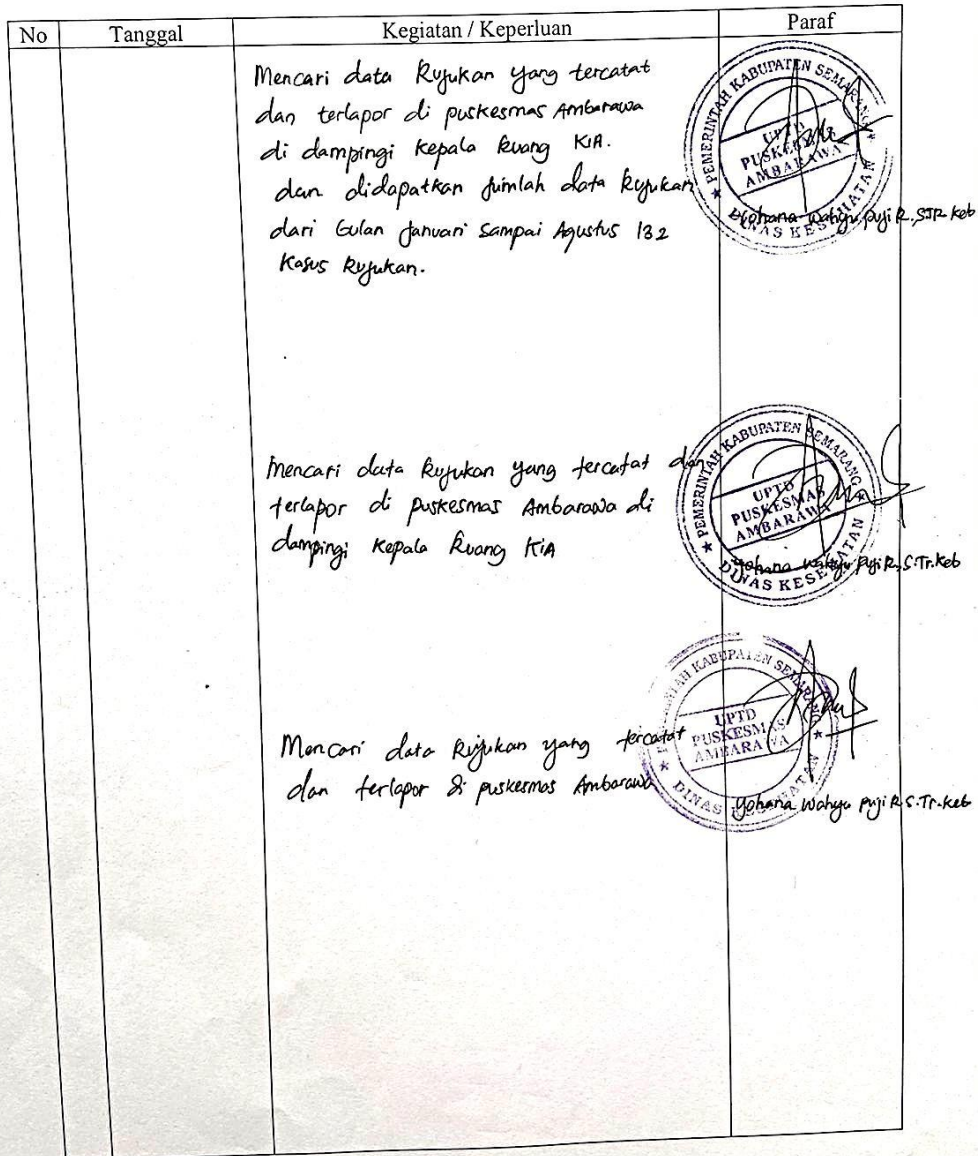 No Tanggal Kegiatan / Keperluan Paraf
Mencari data Rujukan yang tercatat
dan terlapor di puskesmas Ambarawa
di dampingi Kepala Ruang KIA.
dan didapatkan Jumlah data Rujukan
dari bulan Januari Sampai Agustus 132
Kasus Rujukan.
PEMERINTAH KABUPATEN SEMARANG
UPTD
PUSKESMAS
AMBARAWA
DINAS KESEHATAN
Yohana Wahyu puji R., STR Keb
Mencari data Rujukan yang tercatat dan
terlapor di puskesmas Ambarawa di
dampingi Kepala Ruang KIA
PEMERINTAH KABUPATEN SEMARANG
UPTD
PUSKESMAS
AMBARAWA
DINAS KESEHATAN
Yohana Wahyu Puji R., S.Tr.Keb
Mencari data Rujukan yang tercatat
dan terlapor di puskesmas Ambarawa
KABUPATEN SEMARANG
UPTD
PUSKESMAS
AMBARAWA
DINAS KESEHATAN
Yohana Wahyu puji R S.Tr.Keb